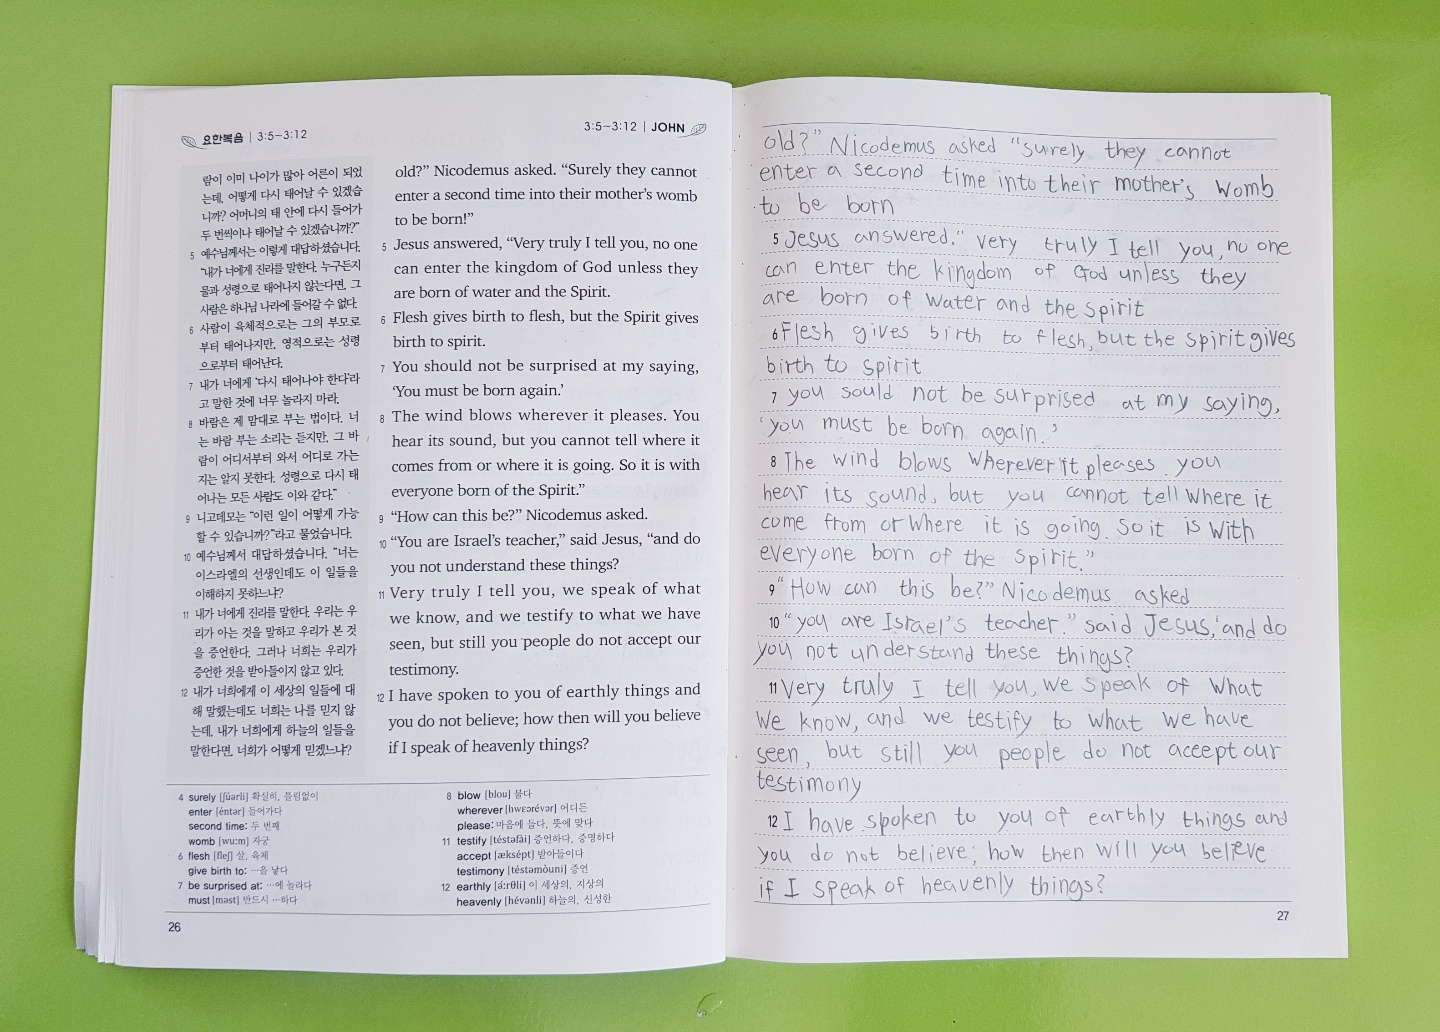 요한복음 | 3:5–3:12
3:5–3:12 | JOHN
람이 이미 나이가 많아 어른이 되었
는데, 어떻게 다시 태어날 수 있겠습
니까? 어머니의 태 안에 다시 들어가
두 번씩이나 태어날 수 있겠습니까?”
5 예수님께서는 이렇게 대답하셨습니다.
“내가 너에게 진리를 말한다. 누구든지
물과 성령으로 태어나지 않는다면, 그
사람은 하나님 나라에 들어갈 수 없다.
6 사람이 육체적으로는 그의 부모로
부터 태어나지만, 영적으로는 성령
으로부터 태어난다.
7 내가 너에게 ‘다시 태어나야 한다’라
고 말한 것에 너무 놀라지 마라.
8 바람은 제 맘대로 부는 법이다. 너
는 바람 부는 소리는 듣지만, 그 바
람이 어디서부터 와서 어디로 가는
지는 알지 못한다. 성령으로 다시 태
어나는 모든 사람도 이와 같다.”
9 니고데모는 “이런 일이 어떻게 가능
할 수 있습니까?”라고 물었습니다.
10 예수님께서 대답하셨습니다. “너는
이스라엘의 선생인데도 이 일들을
이해하지 못하느냐?
11 내가 너에게 진리를 말한다. 우리는 우
리가 아는 것을 말하고 우리가 본 것
을 증언한다. 그러나 너희는 우리가
증언한 것을 받아들이지 않고 있다.
12 내가 너희에게 이 세상의 일들에 대
해 말했는데도 너희는 나를 믿지 않
는데, 내가 너희에게 하늘의 일들을
말한다면, 너희가 어떻게 믿겠느냐?
old?” Nicodemus asked. “Surely they cannot
enter a second time into their mother’s womb
to be born!”
5 Jesus answered, “Very truly I tell you, no one
can enter the kingdom of God unless they
are born of water and the Spirit.
6 Flesh gives birth to flesh, but the Spirit gives
birth to spirit.
7 You should not be surprised at my saying,
‘You must be born again.’
8 The wind blows wherever it pleases. You
hear its sound, but you cannot tell where it
comes from or where it is going. So it is with
everyone born of the Spirit.”
9 “How can this be?” Nicodemus asked.
10 “You are Israel’s teacher,” said Jesus, “and do
you not understand these things?
11 Very truly I tell you, we speak of what
we know, and we testify to what we have
seen, but still you people do not accept our
testimony.
12 I have spoken to you of earthly things and
you do not believe; how then will you believe
if I speak of heavenly things?
4 surely [ʃúərli] 확실히, 틀림없이
enter [éntər] 들어가다
second time: 두 번째
womb [wu:m] 자궁
6 flesh [fleʃ] 살, 육체
give birth to: …을 낳다
7 be surprised at: …에 놀라다
must [məst] 반드시 …하다
8 blow [blou] 불다
wherever [hwɛərévər] 어디든
please: 마음에 들다, 뜻에 맞다
11 testify [téstəfài] 증언하다, 증명하다
accept [æksépt] 받아들이다
testimony [téstəmòuni] 증언
12 earthly [ə́:rθli] 이 세상의, 지상의
heavenly [hévənli] 하늘의, 신성한
26
old?” Nicodemus asked “surely they cannot
enter a second time into their mother's womb
to be born
5 Jesus answered." very truly I tell you, no one
can enter the kingdom of God unless they
are born of water and the spirit
6 Flesh gives birth to flesh, but the spirit gives
birth to spirit
7 you sould not be surprised at my saying,
‘you must be born again.’
8 The wind blows wherever it pleases. you
hear its sound, but you cannot tell where it
come from or where it is going. So it is with
everyone born of the spirit.”
9 “How can this be?” Nicodemus asked
10 “you are Israel's teacher.” said Jesus, ‘and do
you not understand these things?
11 Very truly I tell you, we speak of what
we know, and we testify to what we have
seen, but still you people do not accept our
testimony
12 I have spoken to you of earthly things and
you do not believe; how then will you believe
if I speak of heavenly things?
27